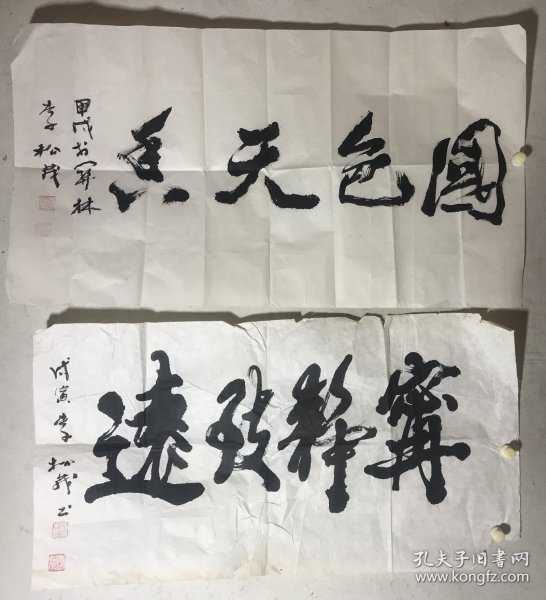 國色天香
甲戌於羿林
李松茂
寧靜致遠
戊寅李松茂書
孔夫子旧书网
www.kongfz.com